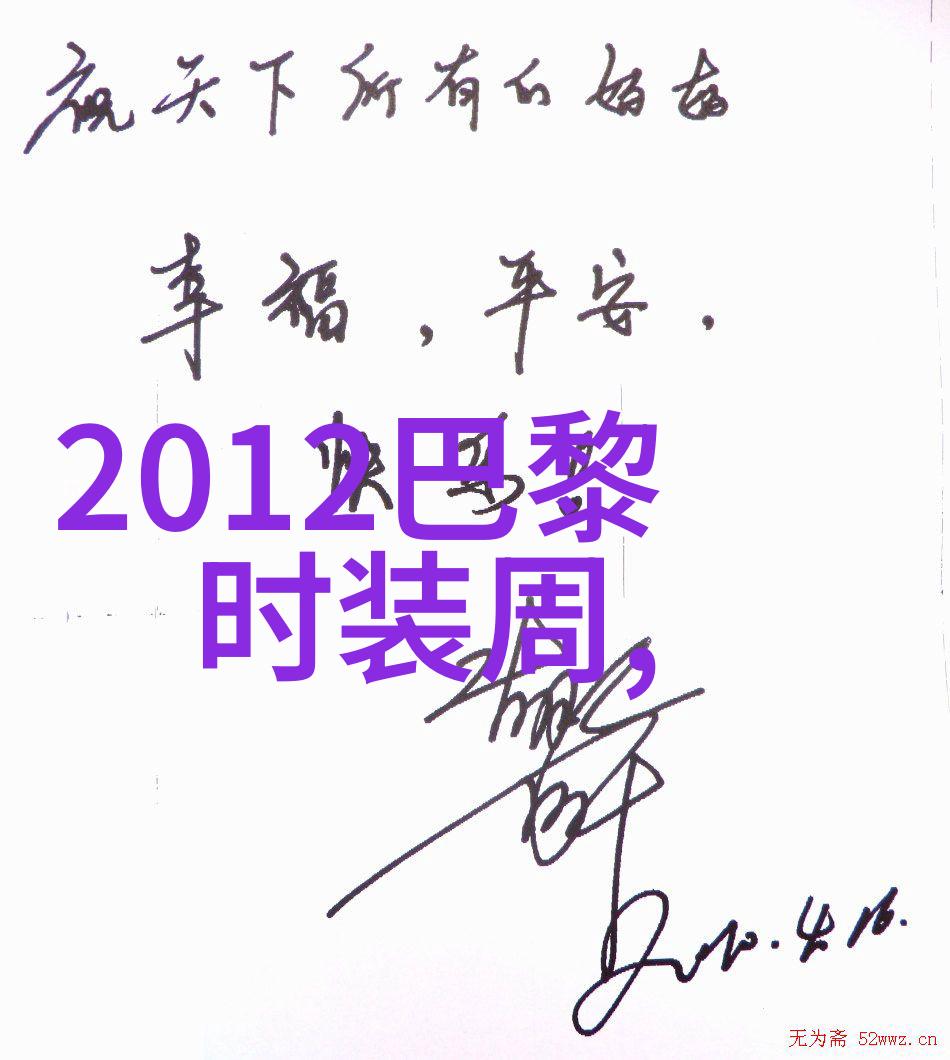 祝天下所有的妈妈
幸福，平安，
快乐！
2012巴黎
时装周，
2010.4.16.
无为斋 52wwz.cn